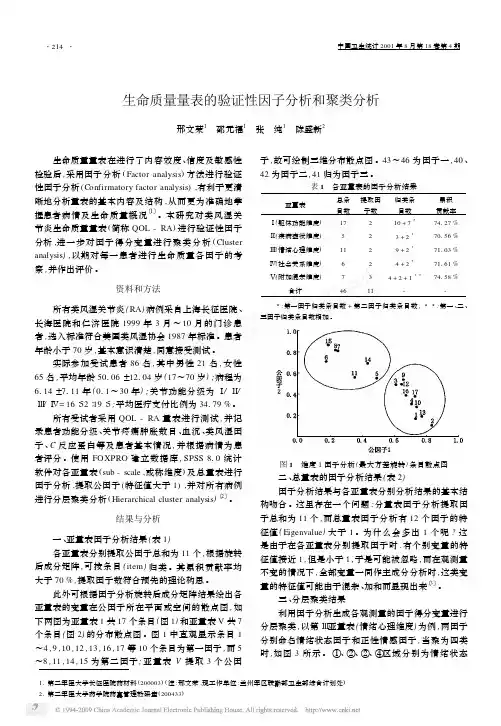 ·214·
中国卫生统计 2001 年 8 月第 18 卷第 4 期
生命质量量表的验证性因子分析和聚类分析
邢文荣¹ 邵元福¹ 张 纯¹ 陈盛新²
生命质量量表在进行了内容效度、信度及敏感性
检验后,采用因子分析 (Factor analysis) 方法进行验证
性因子分析 (Confirmatory factor analysis) ,有利于更清
晰地分析量表的基本内容及结构,从而更为准确地掌
握患者病情及生命质量概况[1]。本研究对类风湿关
节炎生命质量量表(简称 QOL - RA)进行验证性因子
分析,进一步对因子得分变量进行聚类分析 (Cluster
analysis) ,以期对每一患者进行生命质量各因子的考
察,并作出评价。
资料和方法
所有类风湿关节炎(RA)病例采自上海长征医院、
长海医院和仁济医院 1999 年 3 月~10 月的门诊患
者,选入标准符合美国类风湿协会 1987 年标准。患者
年龄小于 70 岁,基本意识清楚,同意接受测试。
实际参加受试患者 86 名,其中男性 21 名,女性
65 名,平均年龄 50.06 ±12.04 岁(17~70 岁);病程为
6.14 ±7.11 年(0.1~30 年);关节功能分级为 Ⅰ/ Ⅱ/
Ⅲ/ Ⅳ= 16/ 52/ 19/ 5;平均医疗支付比例为 34.79 %。
所有受试者采用 QOL - RA 量表进行测试,并记
录患者功能分级、关节疼痛肿胀数目、血沉、类风湿因
子、C 反应蛋白等及患者基本情况,并根据病情为患
者评分。使用 FOXPRO 输立数据库,SPSS 8.0 统计
软件对各亚量表(sub - scale ,或称维度)及总量表进行
因子分析,提取公因子(特征值大于 1) ,并对所有病例
进行分层聚类分析(Hierarchical cluster analysis) [2]。
结果与分析
一、亚量表因子分析结果(表 1)
各亚量表分别提取公因子总和为 11 个,根据旋转
后成分矩阵,可按条目(item)归类。其累积贡献率均
大于 70 %,提取因子数符合预先的理论构思。
此外可根据因子分析旋转后成分矩阵结果绘出各
亚量表的变量在公因子所在平面或空间的散点图,如
下两图为亚量表 1 共 17 个条目(图 1)和亚量表 V 共 7
个条目(图 2)的分布散点图。图 1 中直观显示条目 1
~4 ,9 ,10 ,12 ,13 ,16 ,17 等 10 个条目为第一因子,而 5
~8 ,11 ,14 ,15 为第二因子;亚量表 V 提取 3 个公因
子,故可绘制三维分布散点图。43~46 为因子一,40、
42 为因子二,41 归为因子三。
表 1 各亚量表的因子分析结果
亚量表 总条目数 提取因子数 归类条目数 累积贡献率
Ⅰ(躯体功能维度) 17 2 10 + 7 * 74.27 %
Ⅱ(疾病症状维度) 5 2 3 + 2 * 70.56 %
Ⅲ(情绪心理维度) 11 2 9 + 2 * 71.03 %
Ⅳ(社会关系维度) 6 2 4 + 2 * 71.61 %
Ⅴ(附加题余维度) 7 3 4 + 2 + 1 * * 74.58 %
合计 46 11 - -
* :第一因子归类条目数 + 第二因子归类条目数, * * :第一、二、
三因子归类条目数相加。
公因子2
1.0
0.8
0.6
0.4
0.2
0.0 0.2 0.4 0.6 0.8 1.0
公因子1
图 1 维度 1 因子分析(最大方差旋转)条目散点图
二、总量表的因子分析结果(表 2)
因子分析结果与各亚量表分别分析结果的基本结
构吻合。这里存在一个问题:分量表因子分析提取因
子总和为 11 个,而总量表因子分析有 12 个因子的特
征值(Eigenvalue)大于 1。为什么会多出 1 个呢?这
是由于在各亚量表分别提取因子时,有个别变量的特
征值接近 1,但是小于 1,于是可能被忽略,而在观测量
不变的情况下,全部变量一同作主成分分析时,这类变
量的特征值可能由于混杂、加和而显现出来[3]。
三、分层聚类结果
利用因子分析生成各观测量的因子得分变量进行
分层聚类,以第Ⅲ亚量表(情绪心理维度)为例,两因子
分别命名情绪状态因子和正性情感因子,当聚为四类
时,如图 3 所示。①、②、③、④区域分别为情绪状态
1. 第二军医大学长征医院药材科(200003)(注:邢文荣,现工作单位:兰州军区联勤部卫生部综合计划处)
2. 第二军医大学药学院药事管理教研室(200433)
© 1994-2009 China Academic Journal Electronic Publishing House. All rights reserved. http://www.cnki.net